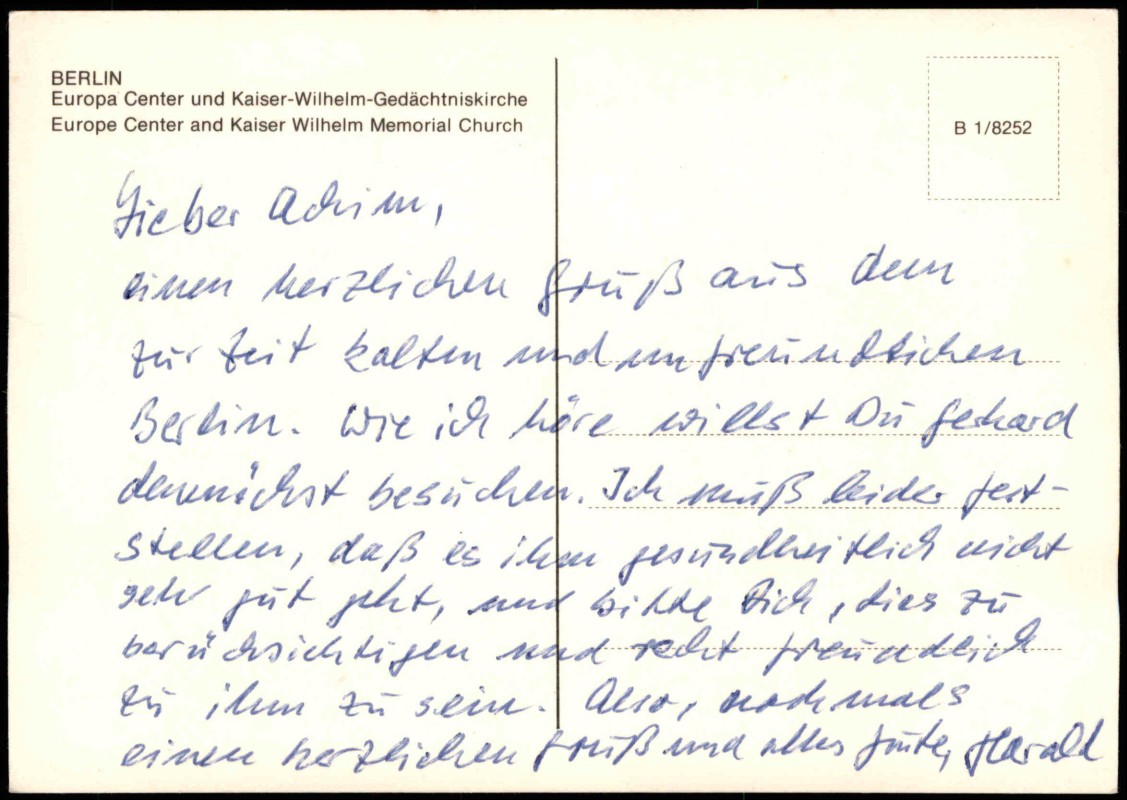 BERLIN
Europa Center und Kaiser-Wilhelm-Gedächtniskirche
Europe Center and Kaiser Wilhelm Memorial Church
B 1/8252
Lieber Achim,
einen herzlichen Gruß aus dem
zur Zeit kalten und unfreundlichen
Berlin. Wie ich höre willst Du Gerhard
demnächst besuchen. Ich muß leider fest-
stellen, daß es ihm gesundheitlich nicht
sehr gut geht, und bitte Dich, dies zu
berücksichtigen und recht freundlich
zu ihm zu sein. Also, nochmals
einen herzlichen Gruß und alles Gute, Harald